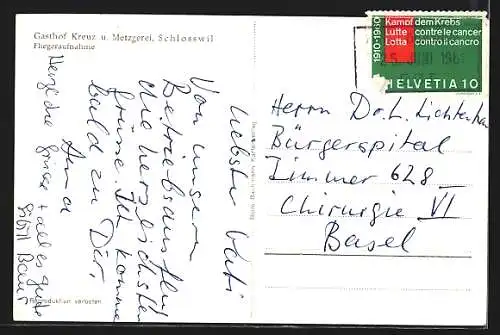 Gasthof Kreuz u. Metzgerei, Schlosswil
Fliegeraufnahme
Liebster Vati
Von unserm
Betriebsausflug
die herzlichsten
Grüsse. Ich komme
bald zu Dir,
Herzliche Grüsse + alles gute
Sibyll Baur
Reproduktion verboten
1910-1960
Kampf dem Krebs
Lutte contre le cancer
Lotta contro il cancro
HELVETIA 10
25. JUNI 196
Herrn Dr. L. Lichtenhan
Bürgerspital
Zimmer 628
Chirurgie VI
Basel